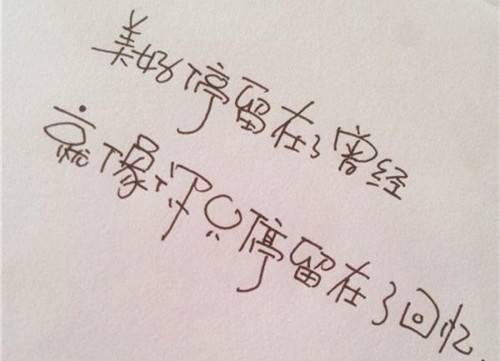 美好停留在了曾经
就像你只停留在了回忆.